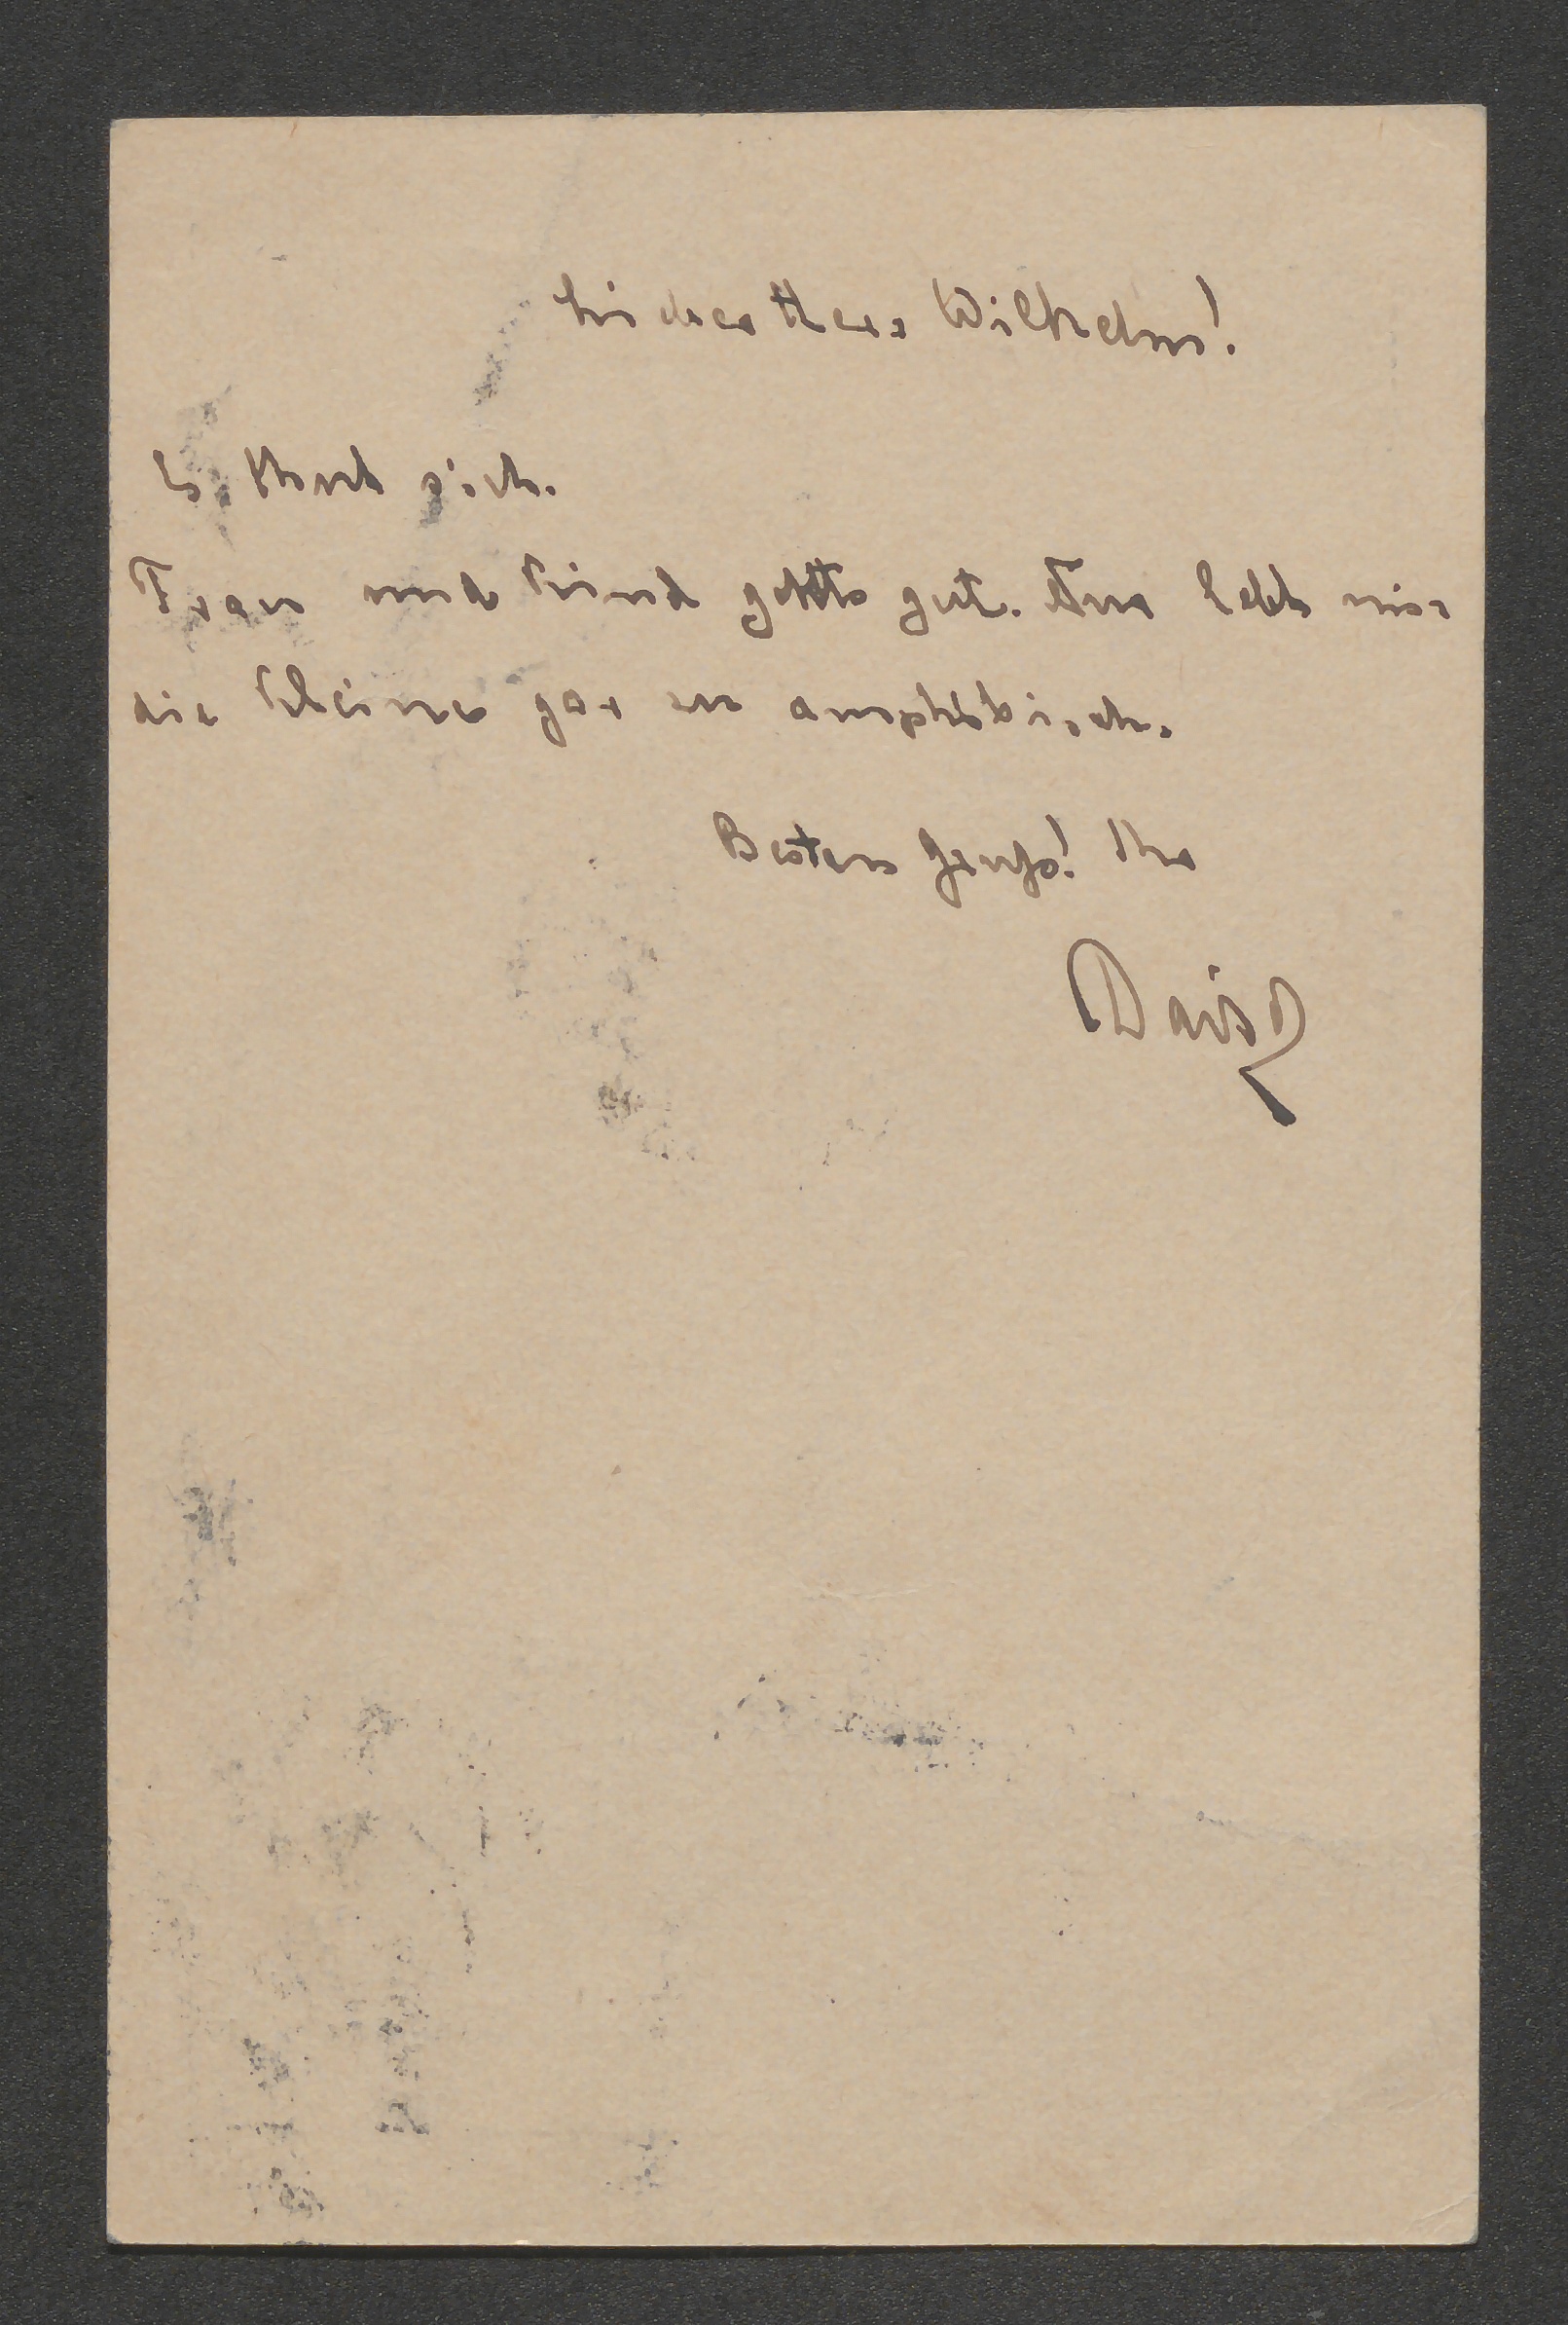 Lieber Herr Wilhelm!
Es thut sich.
Frau und Kind gehts gut. Nur lebt mir
die Kleine gar zu amphibisch.
Besten Gruß! Ihr